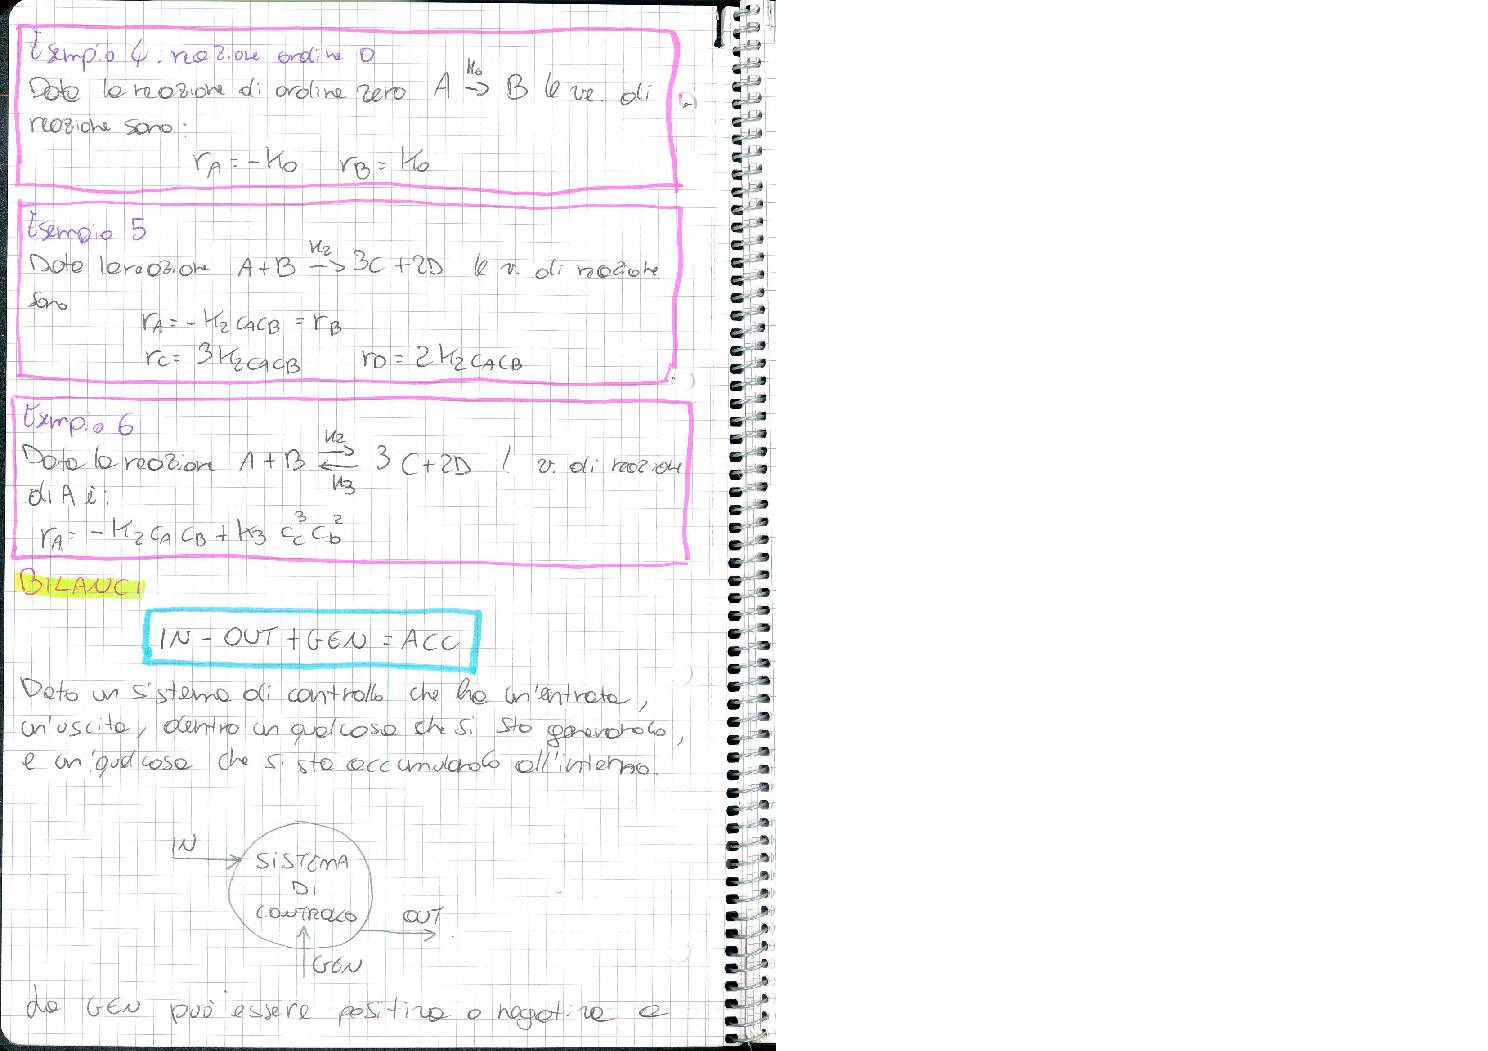 Esempio 4. reazione ordine 0
Data la reazione di ordine zero A →(K₀) B le ve. di
reazione sono:
r_A = -K₀ r_B = K₀
Esempio 5
Data la reazione A + B →(K₂) 3C + 2D le v. di reazione
sono
r_A = - K₂ c_A c_B = r_B
r_C = 3 K₂ c_A c_B r_D = 2 K₂ c_A c_B
Esempio 6
Data la reazione A + B ⇄(K₂, K₃) 3C + 2D l v. di reazione
di A è:
r_A = - K₂ c_A c_B + K₃ c_c³ c_b²
BILANCI
IN - OUT + GEN = ACC
Dato un sistema di controllo che ha un'entrata,
un'uscita, dentro un qualcosa che si sta generando,
e un qualcosa che si sta accumulando all'interno.
IN
SISTEMA
DI
CONTROLLO
OUT
GEN
La GEN può essere positiva o negativa e